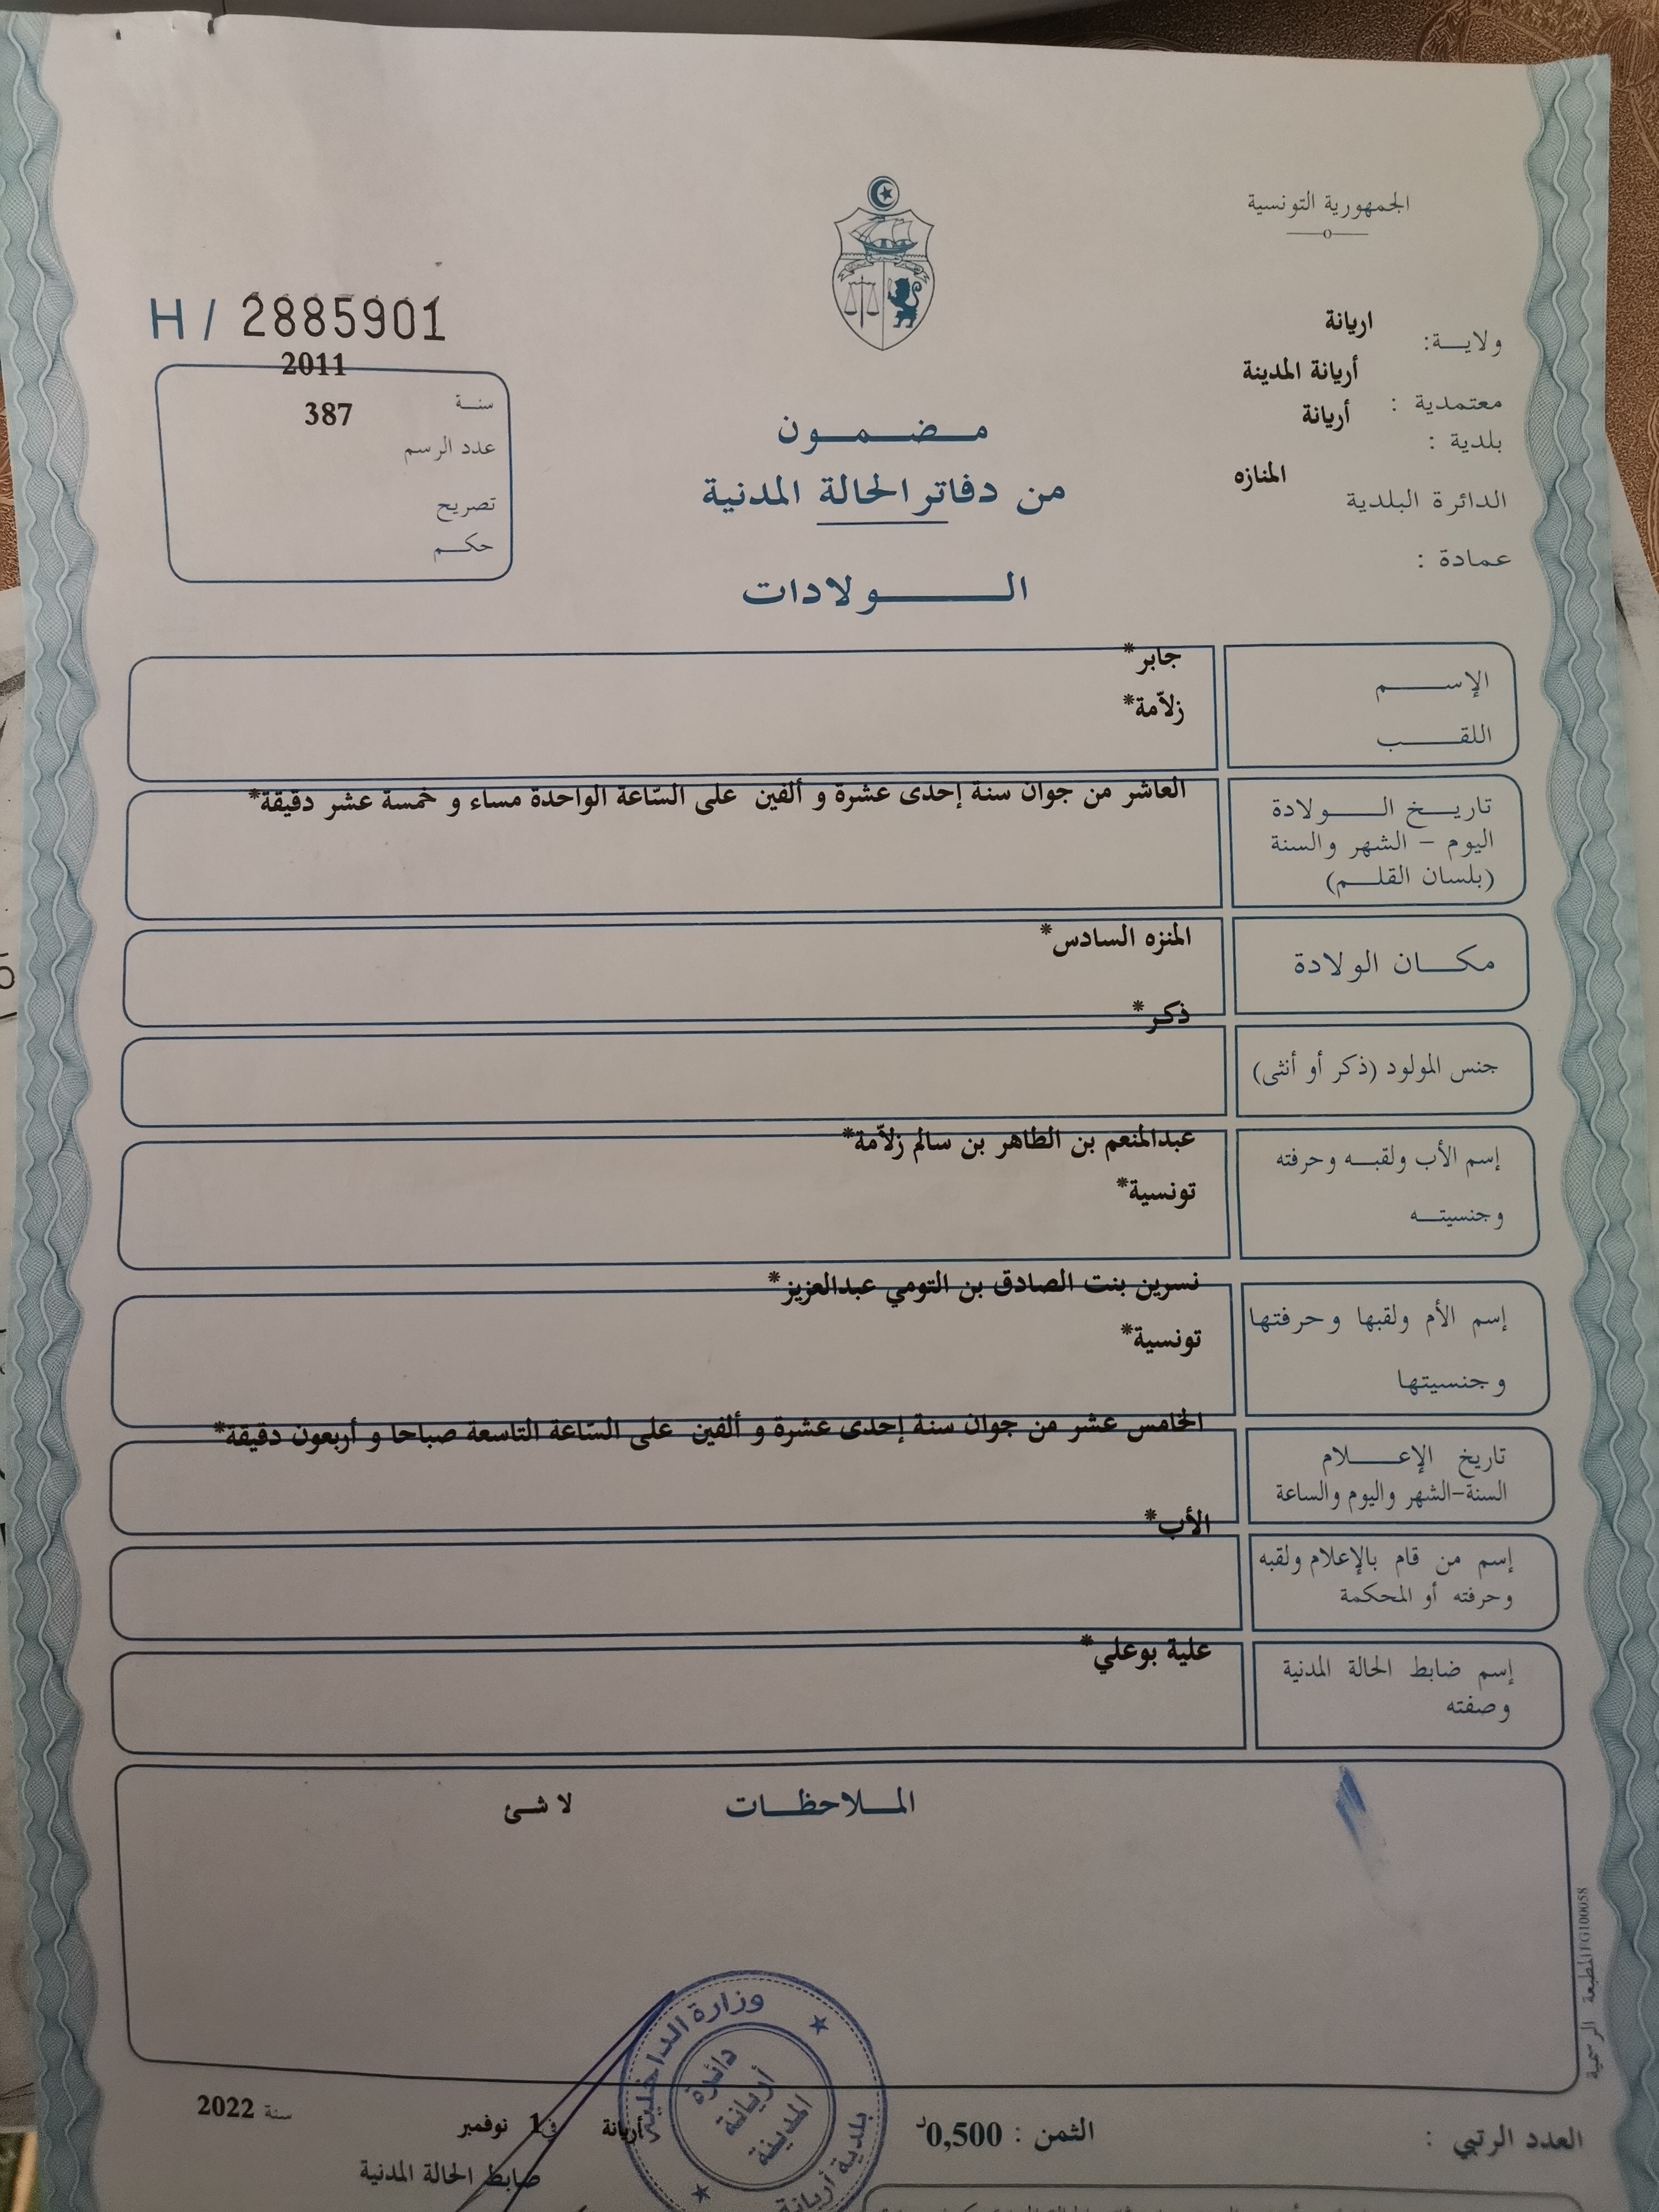 الجمهورية التونسية
ولايـــة: اريانة
معتمدية : أريانة المدينة
بلدية : أريانة
الدائرة البلدية المنازه
عمادة :
H / 2885901
سنـــة 2011
عدد الرسم 387
تصريح
حكـــم
مـــضـــمـــون
من دفاتر الحالة المدنية
الـــــولادات
الإســــم جابر*
اللقــــب زلاّمة*
تاريـــخ الـــــولادة العاشر من جوان سنة إحدى عشرة و ألفين على السّاعة الواحدة مساء و خمسة عشر دقيقة*
اليوم – الشهر والسنة
(بلسان القلـــم)
مكـــان الولادة المنزه السادس*
جنس المولود (ذكر أو أنثى) ذكر*
إسم الأب ولقبـــه وحرفته عبدالمنعم بن الطاهر بن سالم زلاّمة*
وجنسيتـــه تونسية*
إسم الأم ولقبها وحرفتها نسرين بنت الصادق بن التومي عبدالعزيز*
وجنسيتها تونسية*
تاريخ الإعـــــلام الخامس عشر من جوان سنة إحدى عشرة و ألفين على السّاعة التاسعة صباحا و أربعون دقيقة*
السنة-الشهر واليوم والساعة
إسم من قام بالإعلام ولقبه الأب*
وحرفته أو المحكمة
إسم ضابط الحالة المدنية علية بوعلي*
وصفته
الملاحظـــات لا شئ
المطبعة الرسمية
وزارة الداخلية
بلدية أريانة
دائرة
أريانة
المدينة
العدد الرتبي :
الثمن : 0,500د
أريانة في 1 نوفمبر سنة 2022
ضابط الحالة المدنية